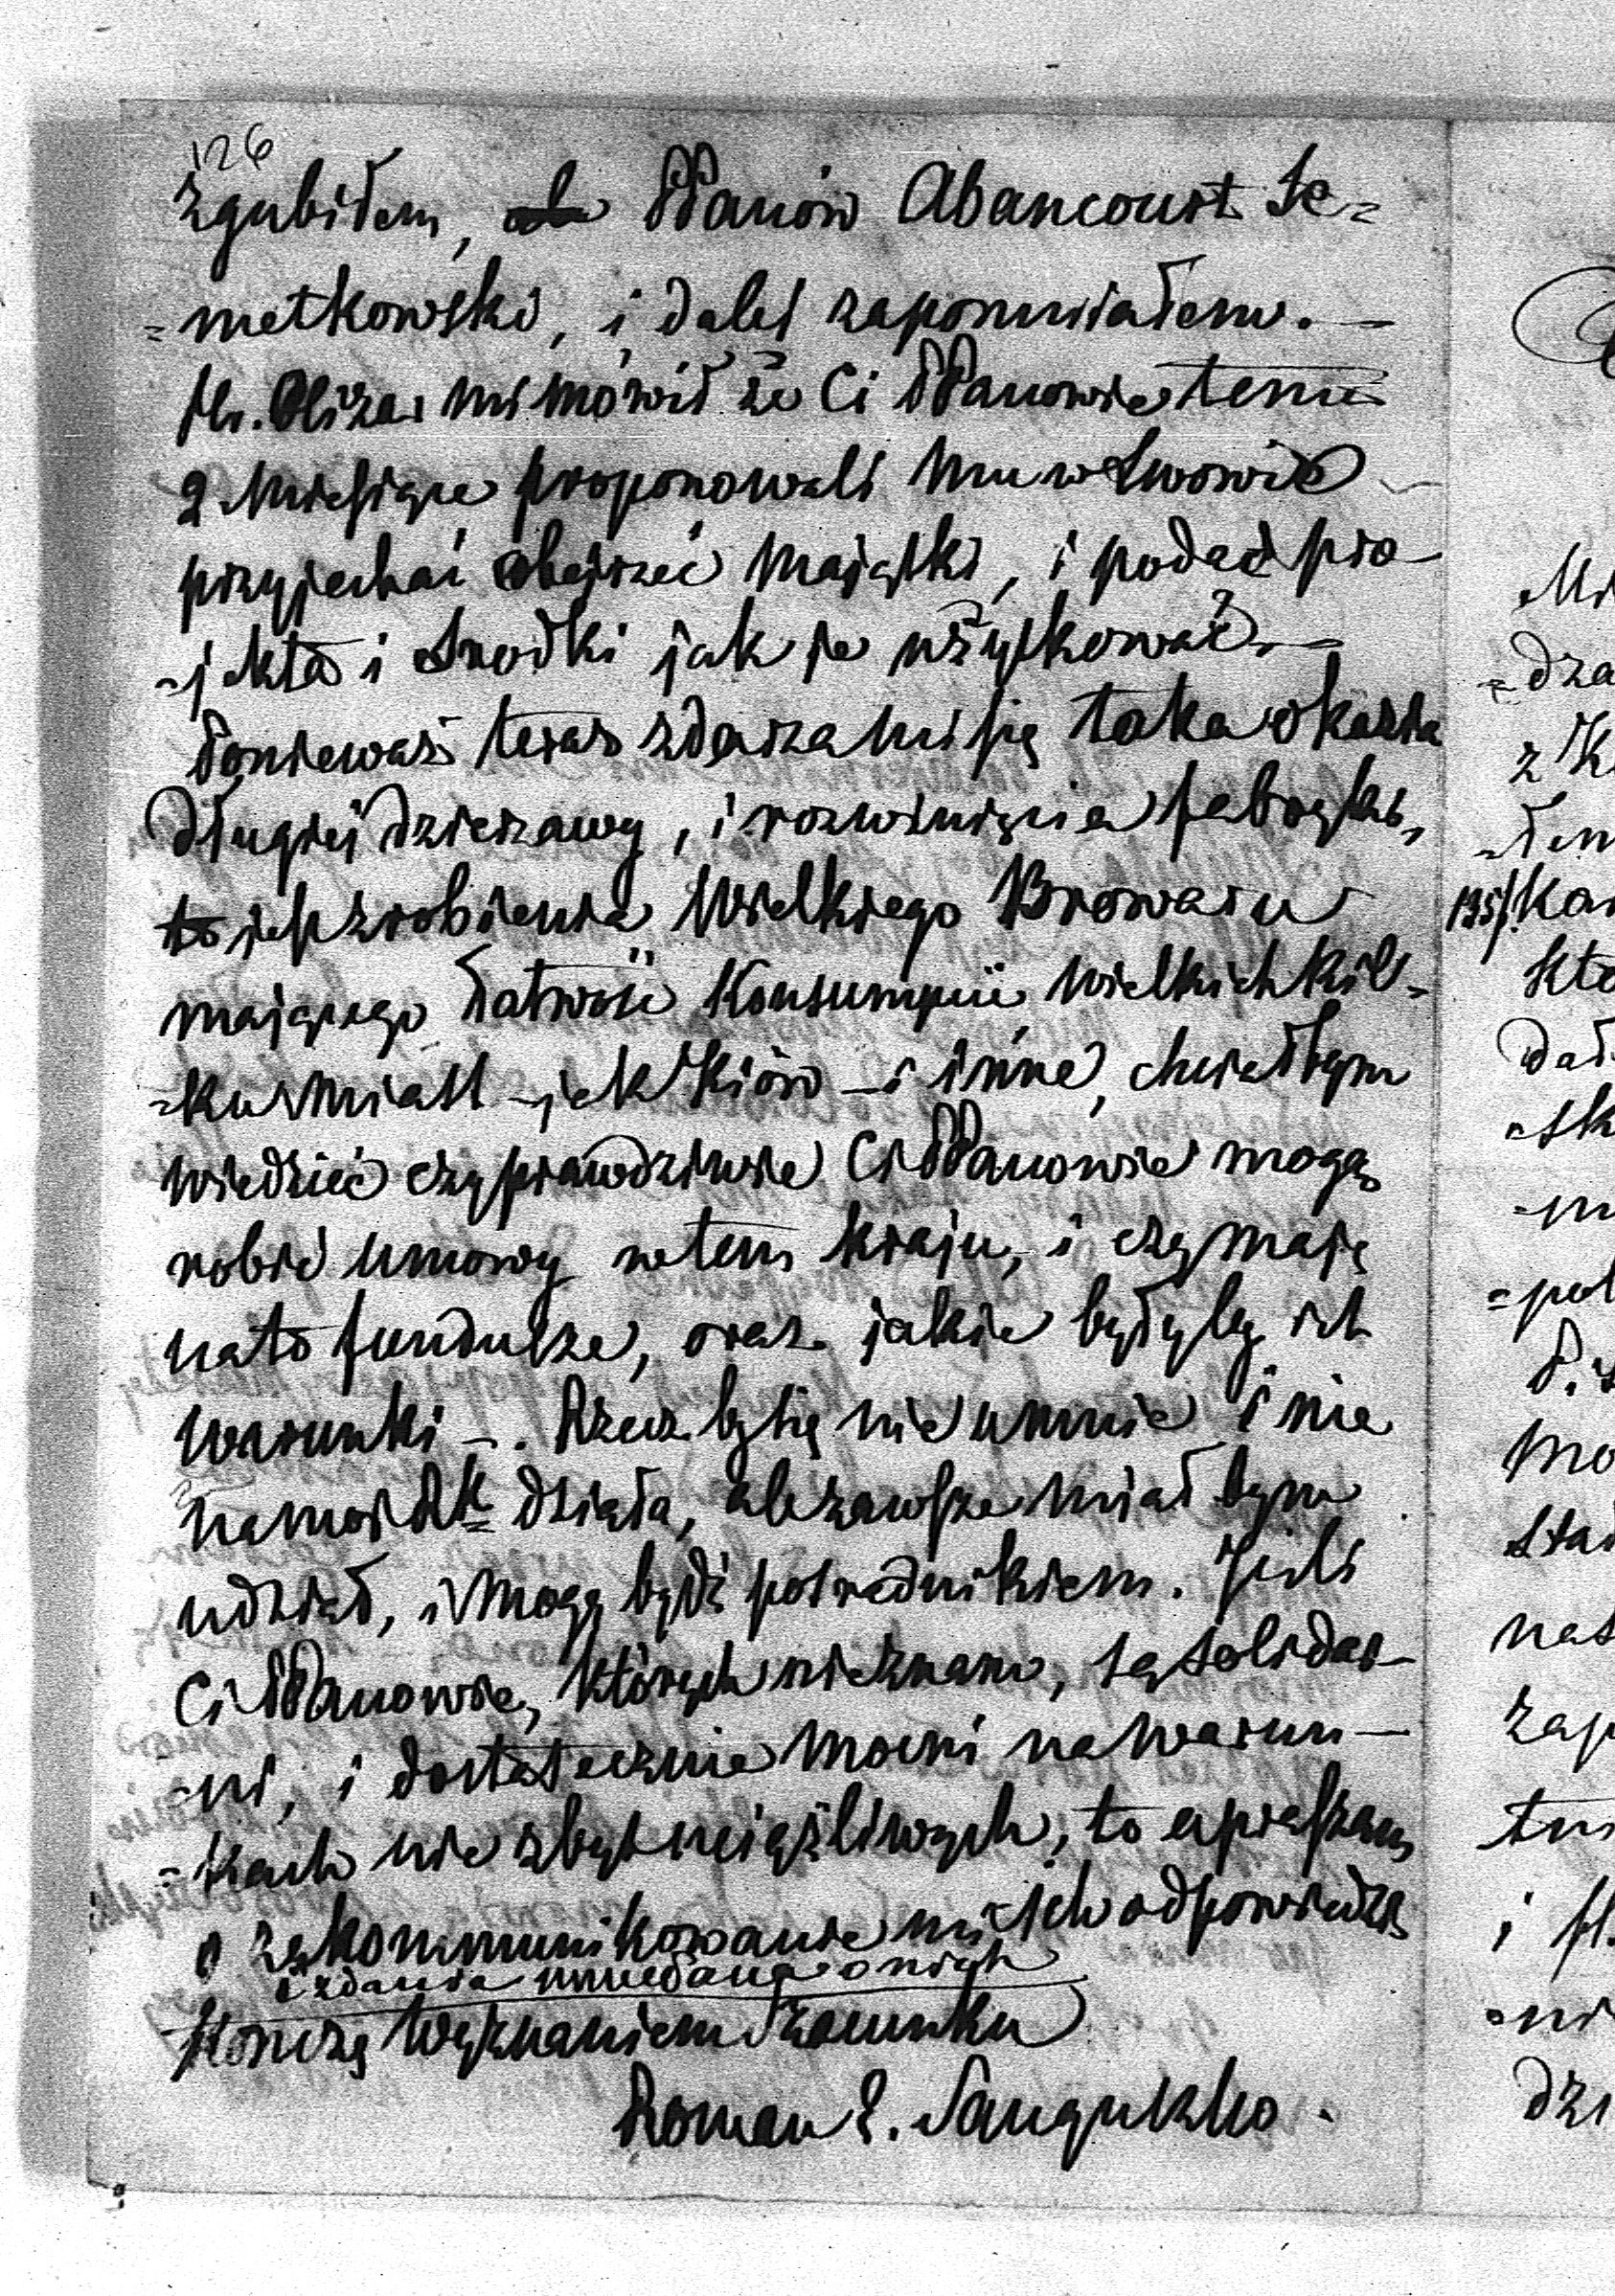 126
zgubiłem, PPanów Abancourt Se=
=metkowski, i daléj zapomniałem. —
Hr. Olizar mi mówił że Ci PPanowie temu
2 Miesiące proponowali mu w Lwowie
przyjechać obejrzéć Majątki, i podać pro-
-jekta i Srodki jak je użytkować. —
Poniewasz teraz zdarza mi się taka okazia
długiéj dzierzawy, i rozwinięcia fabryki,
to jest zrobienia Wielkiego Browaru
mającego łatwość Konsumpcii wielkich kil=
=ku Miast jak Kiów — i inne, chciałbym
wiedzieć czy prawdziwie Ci PPanowie mogą
robić umowy w tem kraju, i czy mają
na to fundusze, oraz jakie byłyby ich
warunki —. Rzecz by się nie u mnie i nie
na mój Rk działa, ale zawsze miał bym
udział, i Mogę bydź posrednikiem. Jesli
Ci PPanowie, których nieznam, są solidar-
-ni, i dostatecznie mocni na warun-
=kach nie zbyt uciążliwych, to upraszam
o zakommunikowanie mi ich odpowiedzi
i zdania o nich
Kończę Wyznaniem Szacunku
Roman S. Sanguszko.
Mi
=dza
z K
=łem
1357. Kar
kto
dał
=sk
-m
=pol
P.
mo
sta
nas
zap
tu
i H.
=ni
dzi